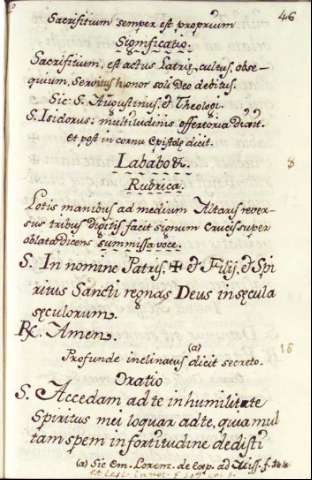 46
Sacrifitium semper est proprium
Significatio.
Sacrifitium, est actus Latriæ, cultus, obse-
quium, Servitus honor soli Deo debitus.
Sic: S. Augustinus, et Theologi.
S. Isidorus: multitudinis offertoria
Et post in cornu Epistolæ dicit.
Lababo &c.
8
Rubrica.
Lotis manibus ad medium Altaris rever-
sus tribus digitis facit signum Crucis super
oblata dicens summissa voce.
S. In nomine Patris, ✠ & Filij, & Spi
ritus Sancti regnas Deus in sęcula
sęculorum.
℟. Amen.
16
(a)
Profunde inclinatus dicit secreto.
Oratio
S. Accedam ad te in humilitate
Spiritus mei loquar ad te, quia mul
tam spem in fortitudine dedisti
(a) Sic Em. Lorenz. de Exp. ad Miss. f.